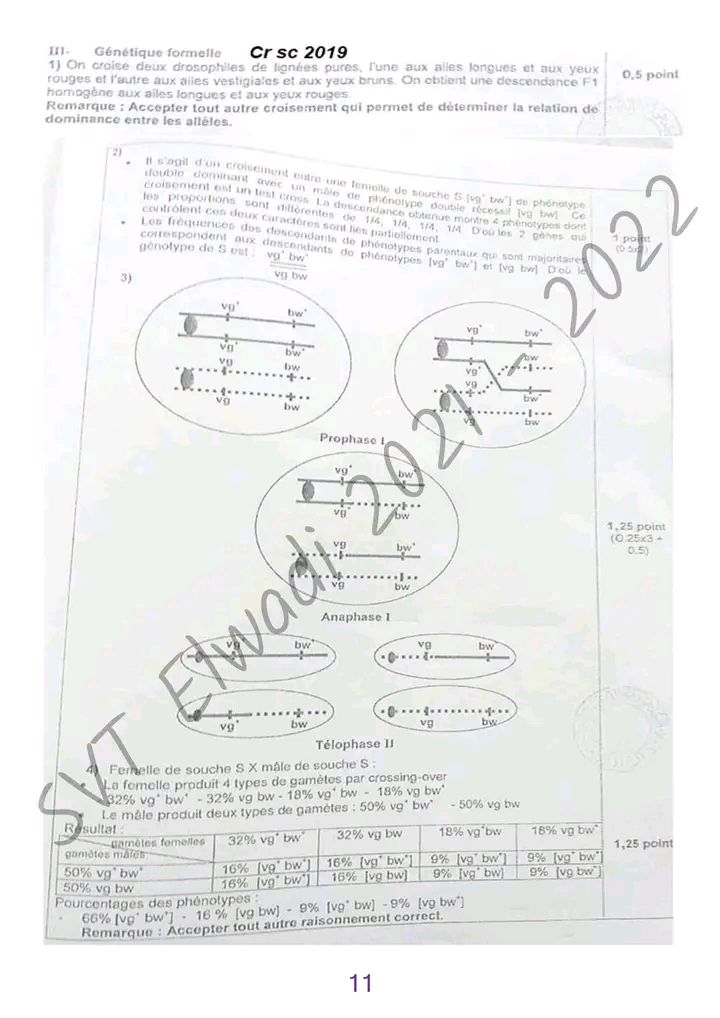 III- Génétique formelle Cr sc 2019
1) On croise deux drosophiles de lignées pures, l'une aux ailes longues et aux yeux
rouges et l'autre aux ailes vestigiales et aux yeux bruns. On obtient une descendance F1
homogène aux ailes longues et aux yeux rouges.
0,5 point
Remarque : Accepter tout autre croisement qui permet de déterminer la relation de
dominance entre les allèles.
2)
• Il s'agit d'un croisement entre une femelle de souche S [vg⁺ bw⁺] de phénotype
double dominant avec un mâle de phénotype double récessif [vg bw]. Ce
croisement est un test cross. La descendance obtenue montre 4 phénotypes dont
les proportions sont différentes de 1/4, 1/4, 1/4, 1/4. D'où les 2 gènes qui
contrôlent ces deux caractères sont liés partiellement.
• Les fréquences des descendants de phénotypes parentaux qui sont majoritaires
correspondent aux descendants de phénotypes [vg⁺ bw⁺] et [vg bw]. D'où le
génotype de S est : vg⁺ bw⁺
vg bw
1 point
(0.5x2)
3)
vg⁺ bw⁺
vg⁺ bw⁺
vg bw
vg bw
vg⁺ bw⁺
vg⁺ bw
vg bw⁺
vg bw
Prophase I
vg⁺ bw⁺
vg⁺ bw
vg bw⁺
vg bw
Anaphase I
1,25 point
(0.25x3 +
0.5)
vg⁺ bw⁺
vg bw⁺
vg⁺ bw
vg bw
Télophase II
4) Femelle de souche S X mâle de souche S :
• La femelle produit 4 types de gamètes par crossing-over
32% vg⁺ bw⁺ - 32% vg bw - 18% vg⁺ bw - 18% vg bw⁺
• Le mâle produit deux types de gamètes : 50% vg⁺ bw⁺ - 50% vg bw
Résultat :
gamètes femelles 32% vg⁺ bw⁺ 32% vg bw 18% vg⁺bw 18% vg bw⁺
gamètes mâles
50% vg⁺ bw⁺ 16% [vg⁺ bw⁺] 16% [vg⁺ bw⁺] 9% [vg⁺ bw⁺] 9% [vg⁺ bw⁺]
50% vg bw 16% [vg⁺ bw⁺] 16% [vg bw] 9% [vg⁺ bw] 9% [vg bw⁺]
1,25 point
Pourcentages des phénotypes :
- 66% [vg⁺ bw⁺] - 16 % [vg bw] - 9% [vg⁺ bw] - 9% [vg bw⁺]
Remarque : Accepter tout autre raisonnement correct.
SVT Elwadi 2021 - 2022
11